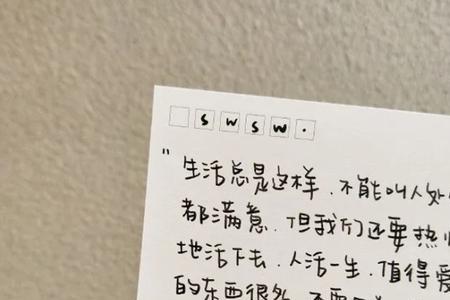 swsw.
"生活总是这样.不能叫人处
都满意.但我们还要热
地活下去.人活一生.值得爱
的东西很多.不要